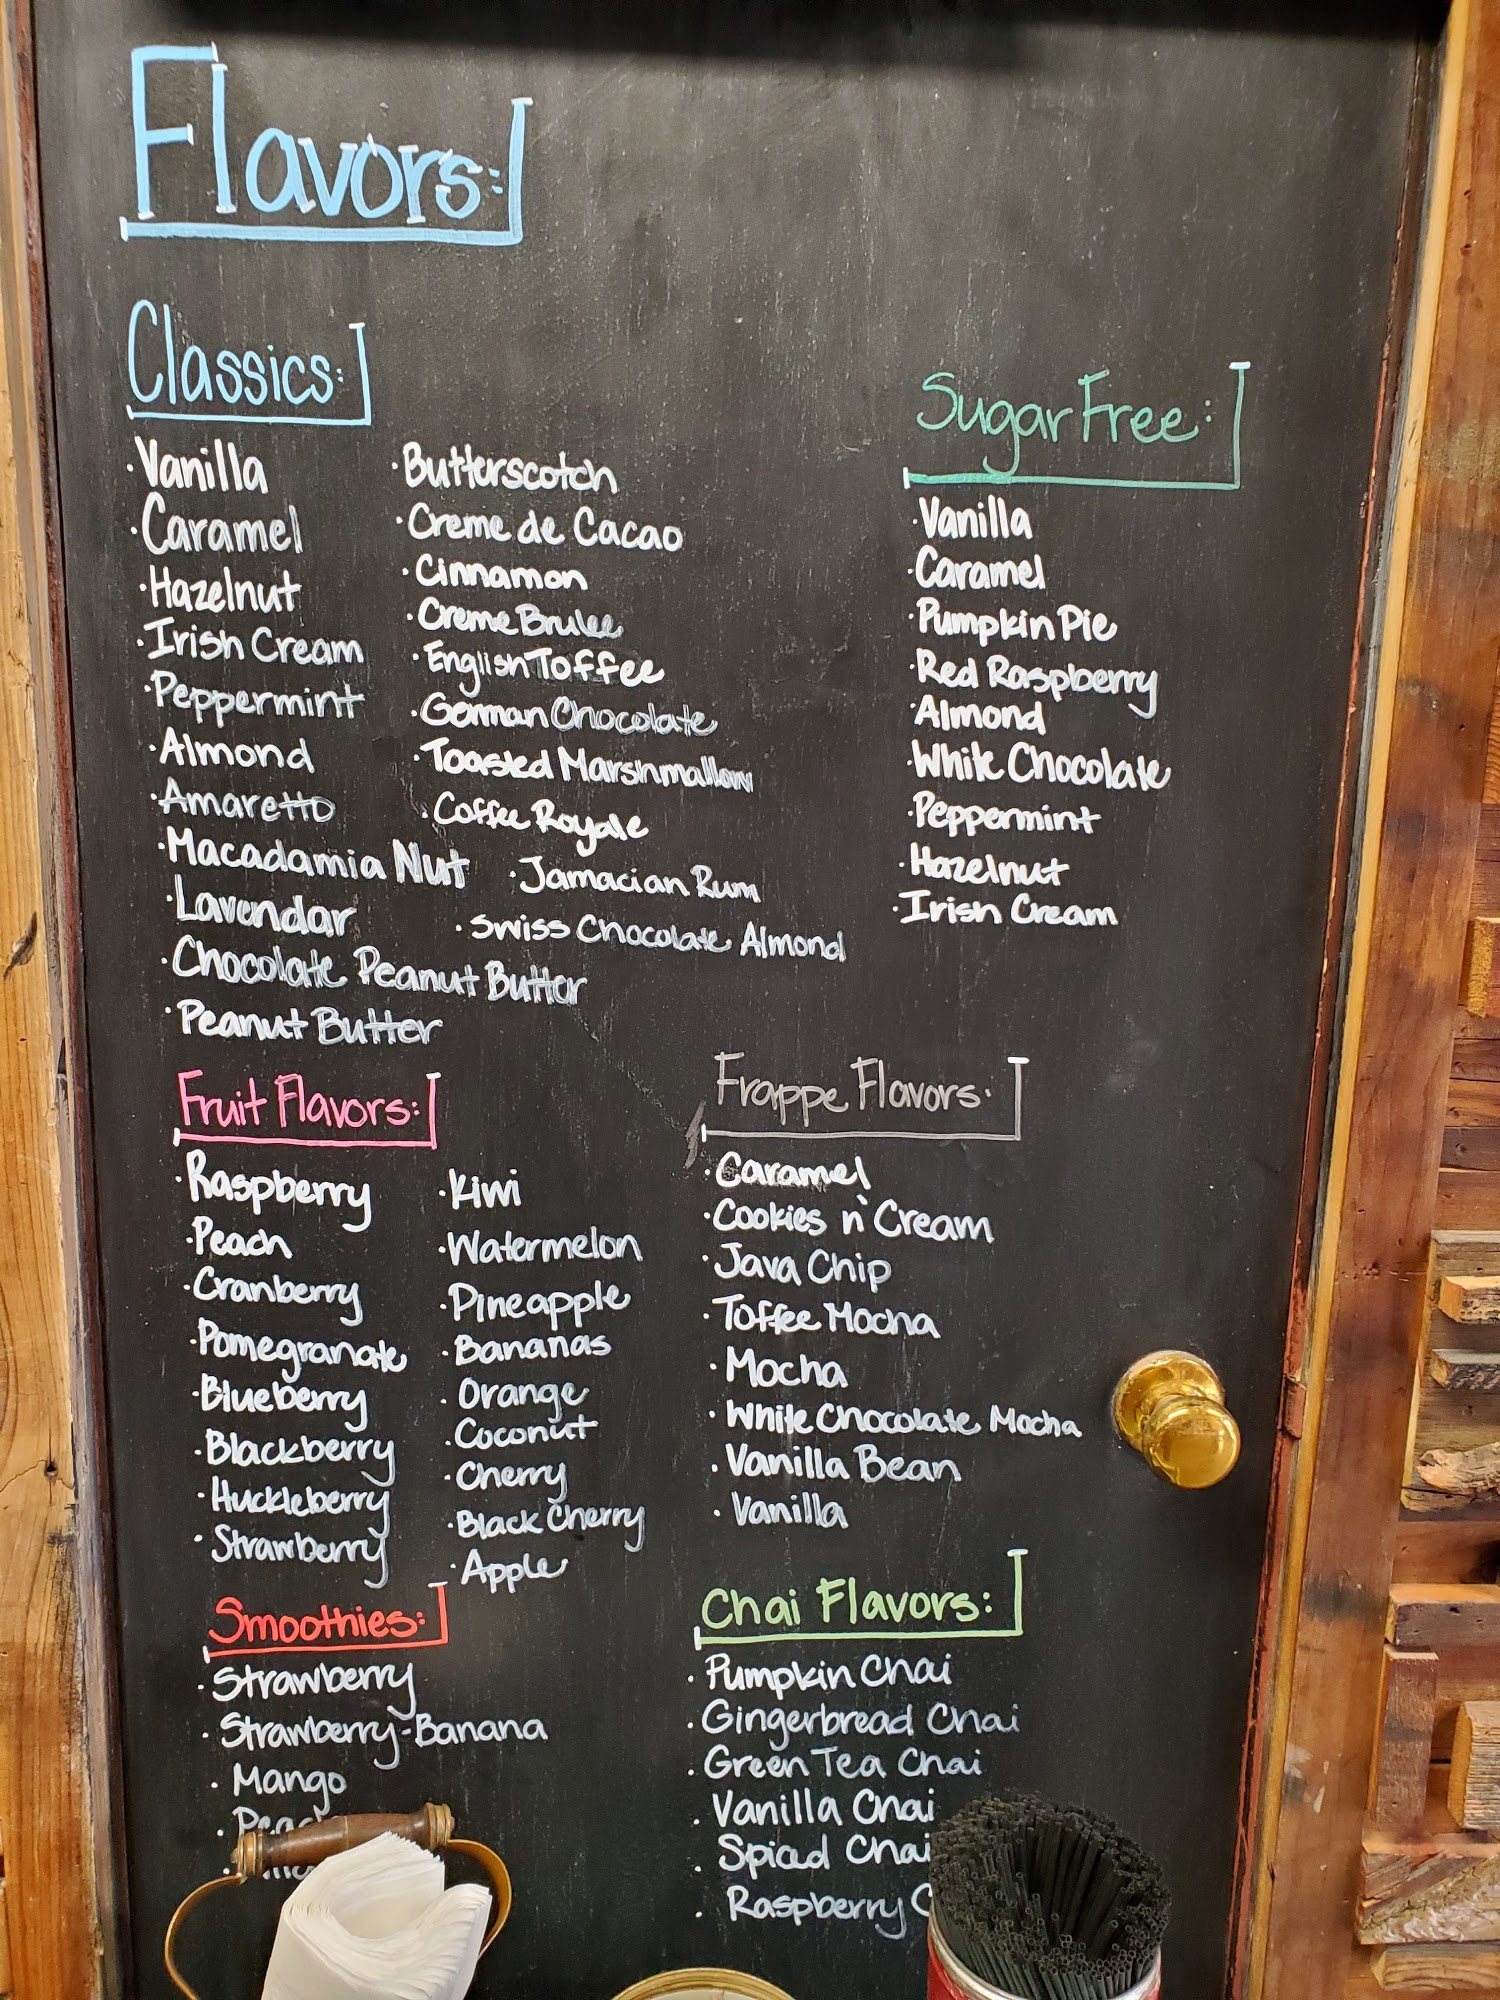 Flavors:
Classics:
· Vanilla
· Caramel
· Hazelnut
· Irish Cream
· Peppermint
· Almond
· Amaretto
· Macadamia Nut
· Lavendar
· Chocolate Peanut Butter
· Peanut Butter
· Butterscotch
· Creme de Cacao
· Cinnamon
· Creme Brulee
· English Toffee
· German Chocolate
· Toasted Marshmallow
· Coffee Royale
· Jamacian Rum
· Swiss Chocolate Almond
Sugar Free:
· Vanilla
· Caramel
· Pumpkin Pie
· Red Raspberry
· Almond
· White Chocolate
· Peppermint
· Hazelnut
· Irish Cream
Fruit Flavors:
· Raspberry
· Peach
· Cranberry
· Pomegranate
· Blueberry
· Blackberry
· Huckleberry
· Strawberry
· Kiwi
· Watermelon
· Pineapple
· Bananas
· Orange
· Coconut
· Cherry
· Black Cherry
· Apple
Frappe Flavors:
· Caramel
· Cookies n' Cream
· Java Chip
· Toffee Mocha
· Mocha
· White Chocolate Mocha
· Vanilla Bean
· Vanilla
Smoothies:
· Strawberry
· Strawberry-Banana
· Mango
Chai Flavors:
· Pumpkin Chai
· Gingerbread Chai
· Green Tea Chai
· Vanilla Chai
· Spiced Chai
· Raspberry